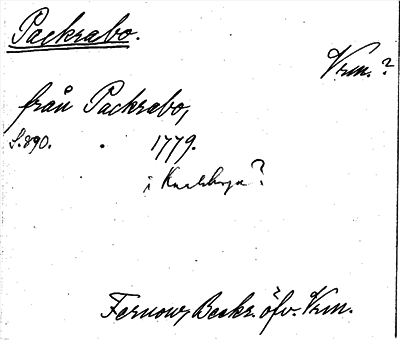 Packrabo.
Vrm.?
från Packrabo,
S. 890. 1779.
i ?
Fernow, Beskr. öfv. Vrm.